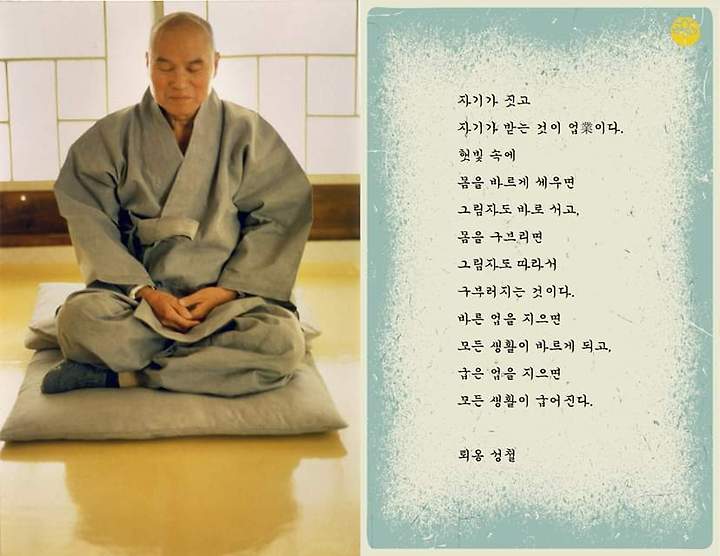 자기가 짓고
자기가 받는 것이 업業이다.
햇빛 속에
몸을 바르게 세우면
그림자도 바로 서고,
몸을 구부리면
그림자도 따라서
구부러지는 것이다.
바른 업을 지으면
모든 생활이 바르게 되고,
굽은 업을 지으면
모든 생활이 굽어진다.
퇴옹 성철